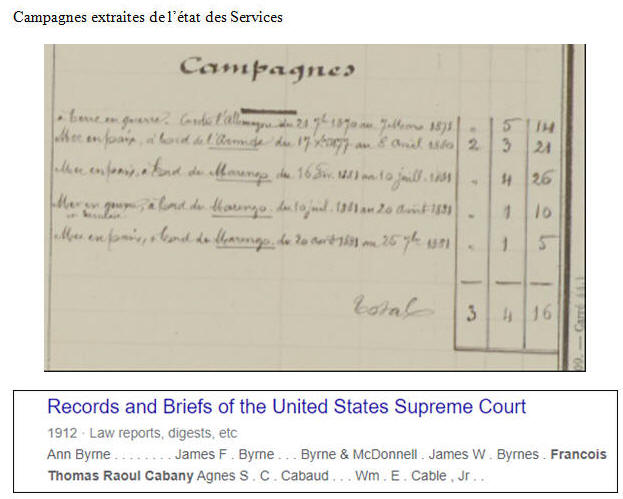 Campagnes extraites de l'état des Services
Campagnes
à terre en guerre? Contre l'Allemagne du 21 7bre 1870 au 7 Mars 1871 " 5 14
Mer en paix, à bord de l'Armide du 17 Xbre 1877 au 8 avril 1880 2 3 21
Mer en paix, à bord du Marengo du 16 Fév. 1881 au 10 juill. 1881 " 4 26
Mer en guerre, à bord du Marengo du 10 juil. 1881 au 20 août 1881 " 1 10
en
Mer en paix, à bord du Marengo du 20 août 1881 au 25 7bre 1881 " 1 5
Total 3 4 16
99. — Carré
Records and Briefs of the United States Supreme Court
1912 · Law reports, digests, etc
Ann Byrne . . . . . . . . James F . Byrne . . . Byrne & McDonnell . James W . Byrnes . Francois
Thomas Raoul Cabany Agnes S . C . Cabaud . . . Wm . E . Cable , Jr . .